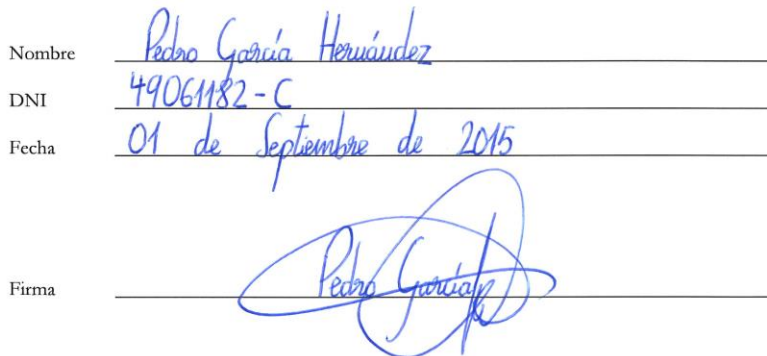 Nombre Pedro García Hernández
DNI 49061182-C
Fecha 01 de Septiembre de 2015
Firma Pedro García